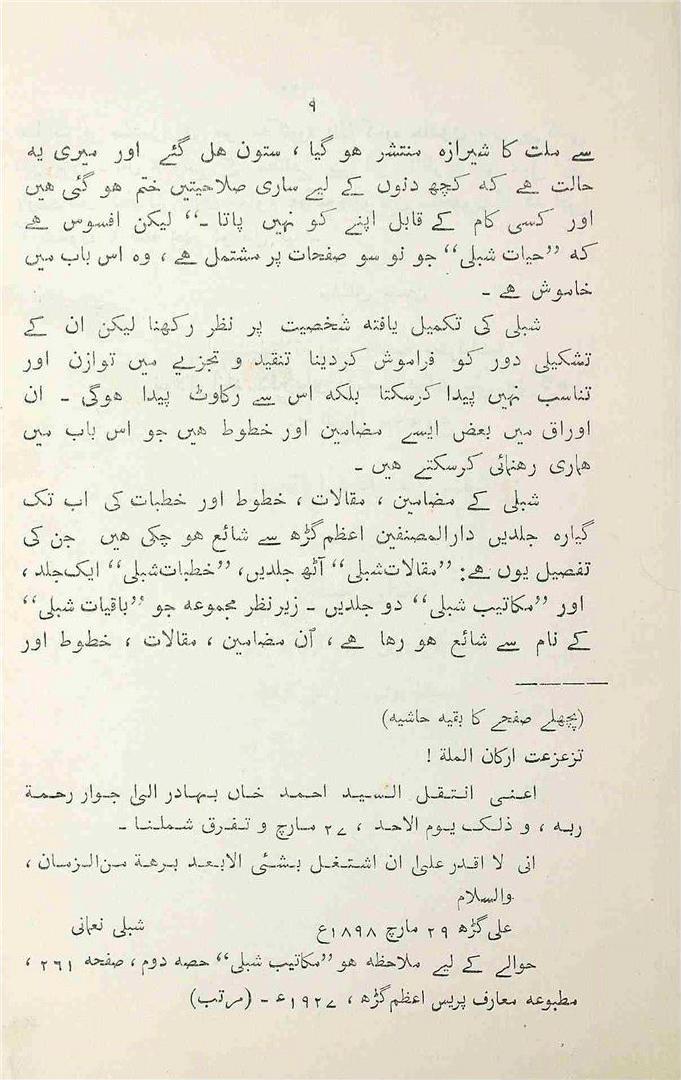 ۹
سے ملت کا شیرازہ منتشر ہو گیا ، ستون ہل گئے اور میری یہ
حالت ہے کہ کچھ دنوں کے لیے ساری صلاحیتیں ختم ہو گئی ہیں
اور کسی کام کے قابل اپنے کو نہیں پاتا ۔‘‘ لیکن افسوس ہے
کہ ’’حیات شبلی‘‘ جو نو سو صفحات پر مشتمل ہے ، وہ اس باب میں
خاموش ہے ۔
شبلی کی تکمیل یافتہ شخصیت پر نظر رکھنا لیکن ان کے
تشکیلی دور کو فراموش کردینا تنقید و تجزیے میں توازن اور
تناسب نہیں پیدا کرسکتا بلکہ اس سے رکاوٹ پیدا ہوگی ۔ ان
اوراق میں بعض ایسے مضامین اور خطوط ہیں جو اس باب میں
ہماری رہنمائی کرسکتے ہیں ۔
شبلی کے مضامین ، مقالات ، خطوط اور خطبات کی اب تک
گیارہ جلدیں دارالمصنفین اعظم گڑھ سے شائع ہو چکی ہیں جن کی
تفصیل یوں ہے: ’’مقالات شبلی‘‘ آٹھ جلدیں، ’’خطبات شبلی‘‘ ایک جلد ،
اور ’’مکاتیب شبلی‘‘ دو جلدیں ۔ زیر نظر مجموعہ جو ’’باقیات شبلی‘‘
کے نام سے شائع ہو رہا ہے ، اُن مضامین ، مقالات ، خطوط اور
(پچھلے صفحے کا بقیہ حاشیہ)
تزعزعت ارکان الملة !
اعنی انتقل السید احمد خاں بہادر الیٰ جوار رحمة
ربہ ، و ذلک یوم الاحد ، ۲۷ مارچ و تفرق شملنا ۔
انی لا اقدر علیٰ ان اشتغل بشئی الابعد برھة من الزمان ،
والسلام
علی گڑھ ۲۹ مارچ ۱۸۹۸ع شبلی نعمانی
حوالے کے لیے ملاحظہ ہو ’’مکاتیب شبلی‘‘ حصہ دوم ، صفحہ ۲۶۱ ،
مطبوعہ معارف پریس اعظم گڑھ ، ۱۹۲۷ع ۔ (مرتب)